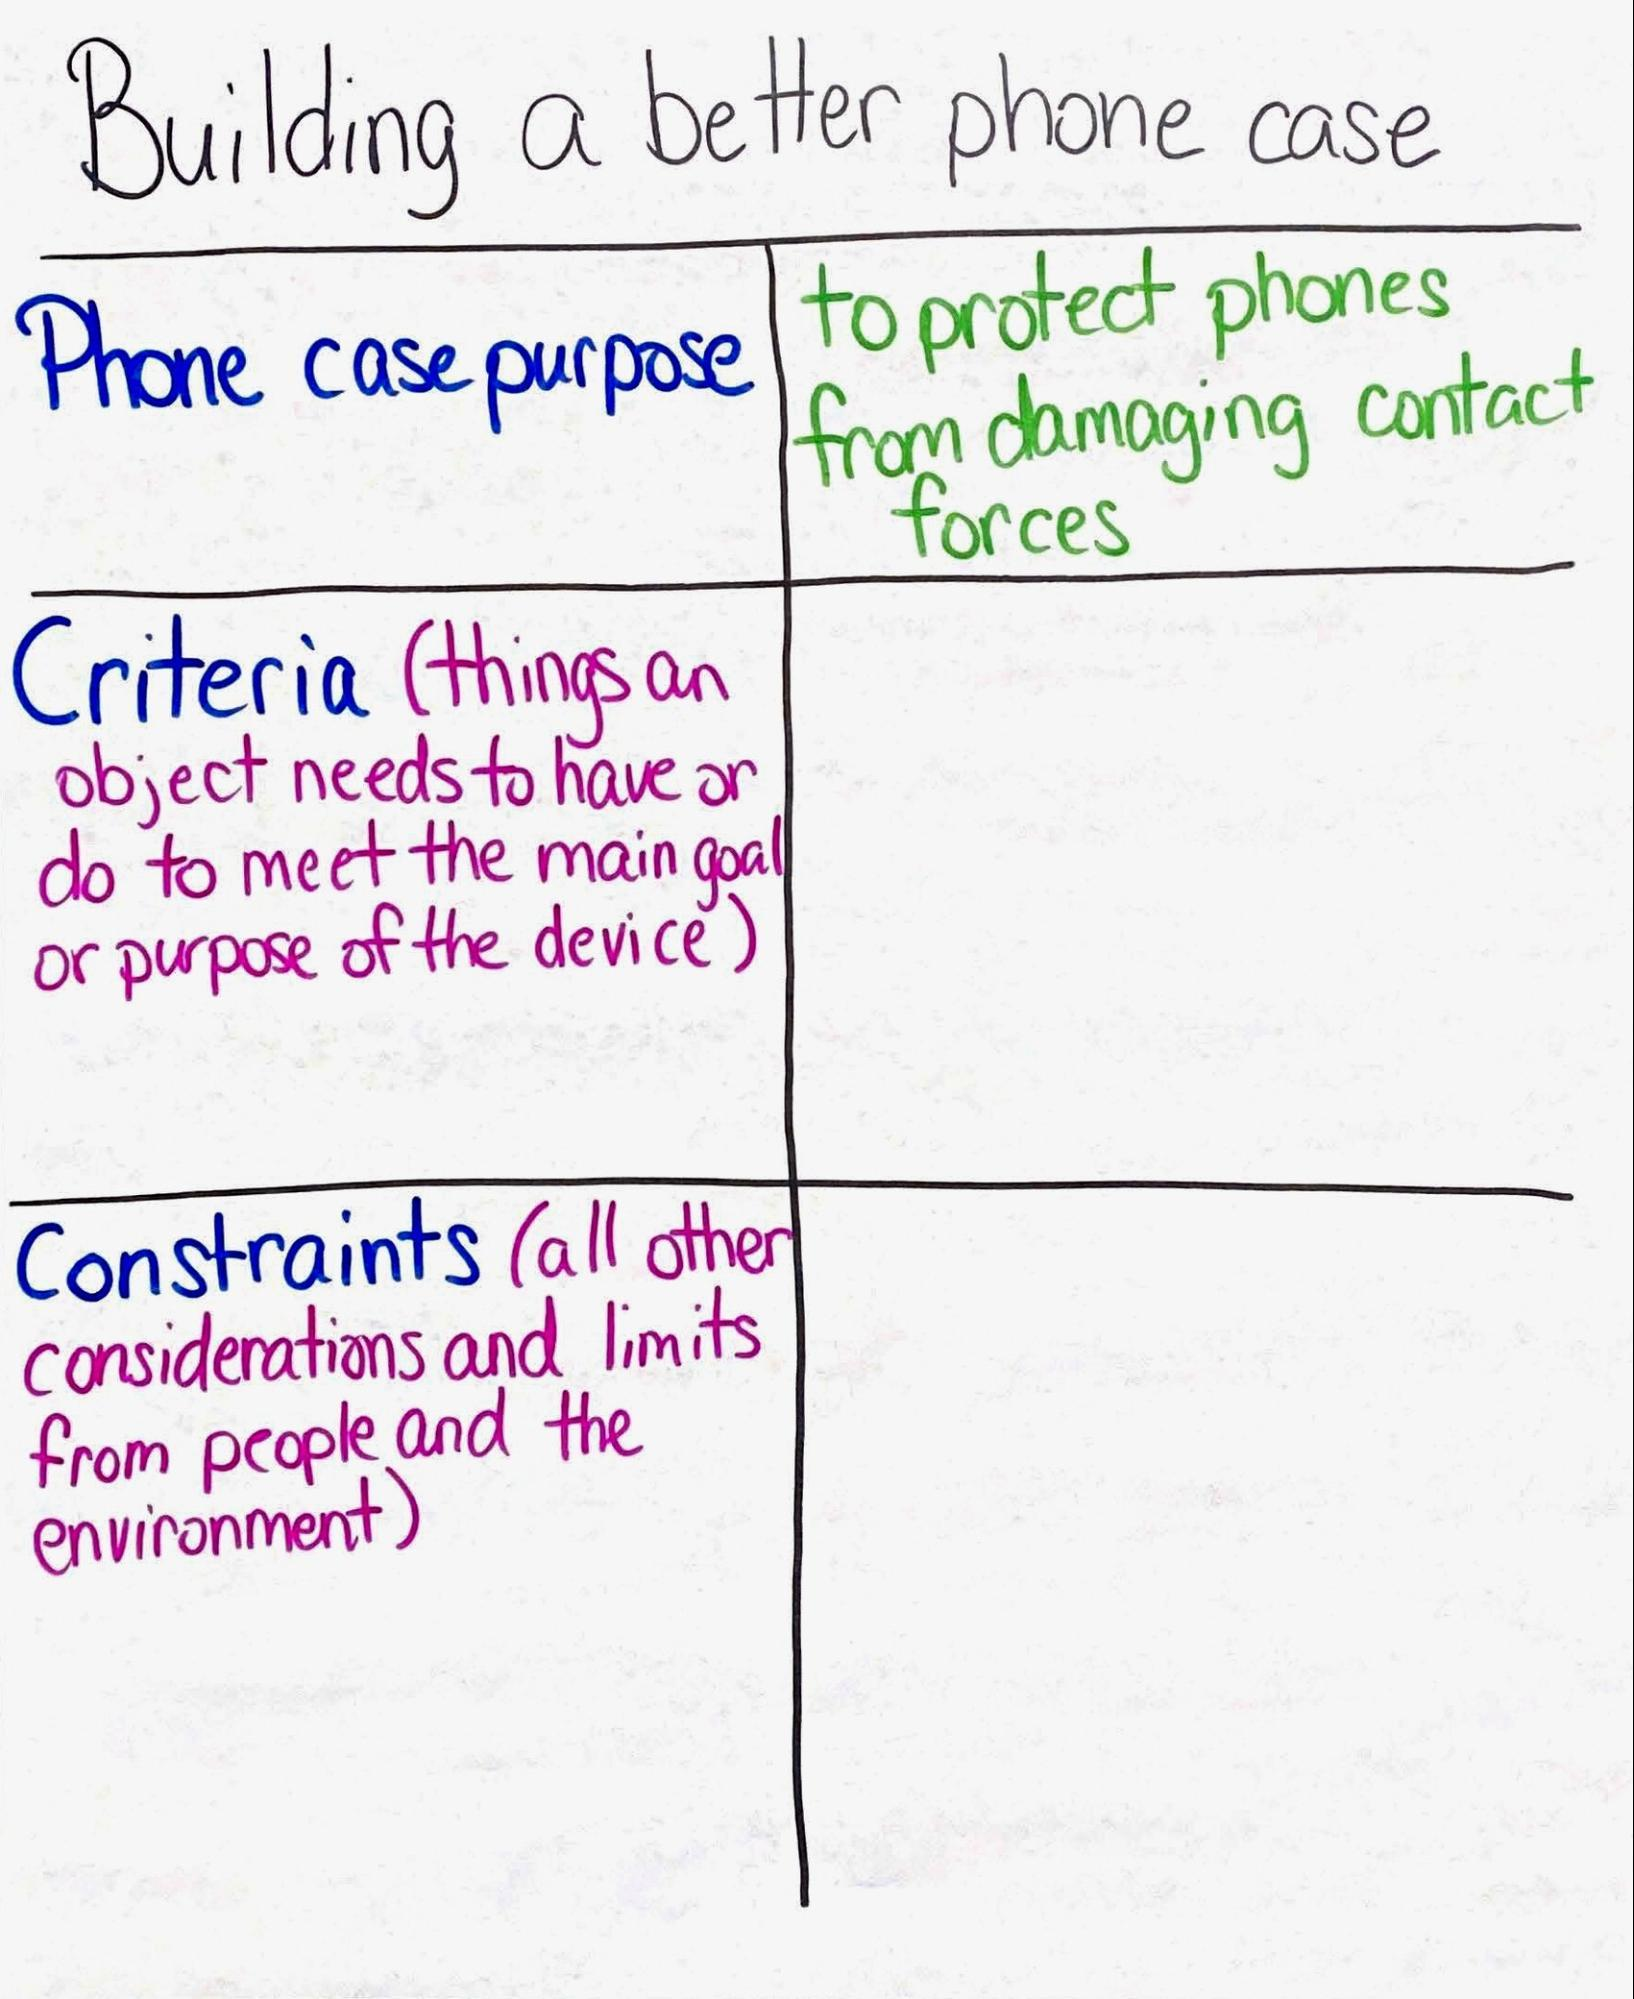 Building a better phone case
Phone case purpose
to protect phones
from damaging contact
forces
Criteria (things an
object needs to have or
do to meet the main goal
or purpose of the device)
Constraints (all other
considerations and limits
from people and the
environment)